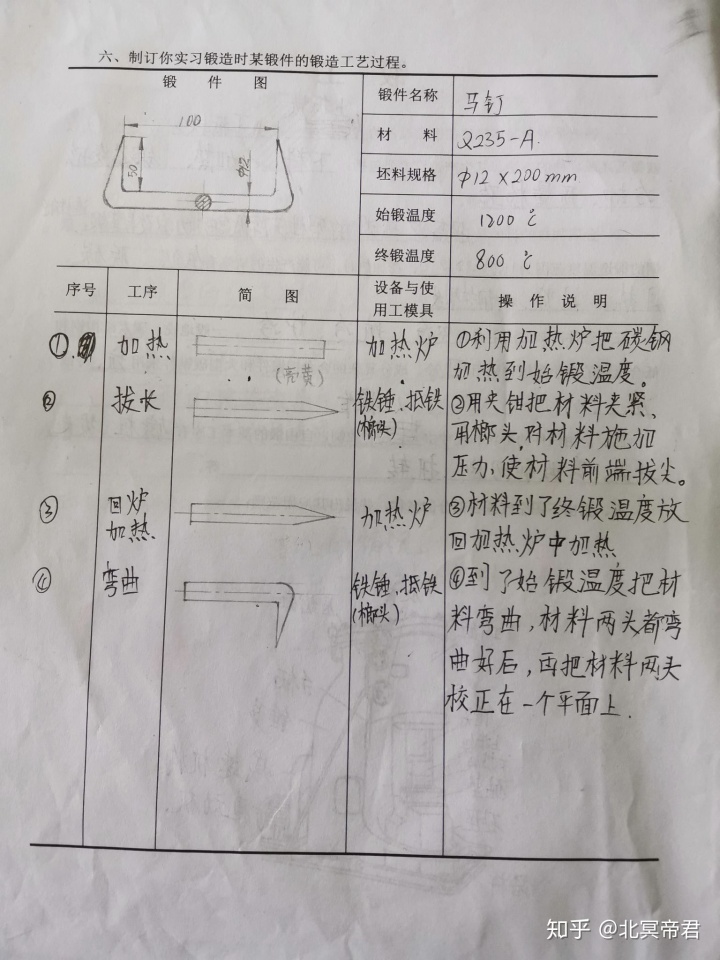 六、制订你实习锻造时某锻件的锻造工艺过程。
锻 件 图
100
50
Φ12
锻件名称 马钉
材 料 Q235-A.
坯料规格 Φ12×200mm
始锻温度 1200℃
终锻温度 800℃
序号 工序 简 图 设备与使用工模具 操 作 说 明
① 加热 (亮黄) 加热炉 ①利用加热炉把碳钢
加热到始锻温度。
② 拔长 铁锤、抵铁 ②用夹钳把材料夹紧、
(榔头) 用榔头对材料施加
压力,使材料前端拔尖。
③ 回炉 加热炉 ③材料到了终锻温度放
加热 回加热炉中加热
④ 弯曲 铁锤、抵铁 ④到了始锻温度把材
(榔头) 料弯曲,材料两头都弯
曲好后,再把材料两头
校正在一个平面上.
知乎 @北冥帝君